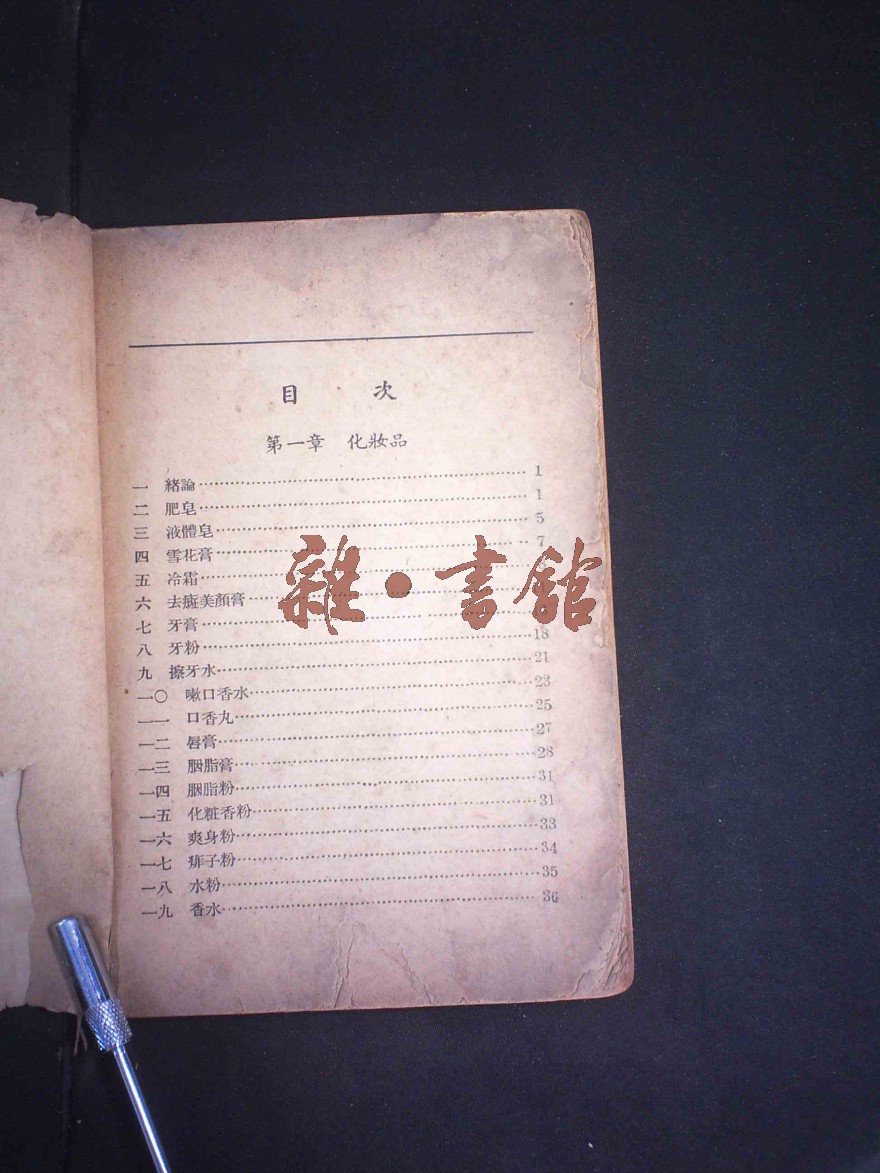 目 次
第一章 化妝品
一 緒論 1
二 肥皂 1
三 液體皂 5
四 雪花膏 7
五 冷霜
六 去斑美顏膏
七 牙膏
八 牙粉 18
九 擦牙水 21
一〇 嗽口香水 23
一一 口香丸 25
一二 唇膏 27
一三 胭脂膏 28
一四 胭脂粉 31
一五 化粧香粉 31
一六 爽身粉 33
一七 痱子粉 34
一八 水粉 35
一九 香水 36
雜·書館